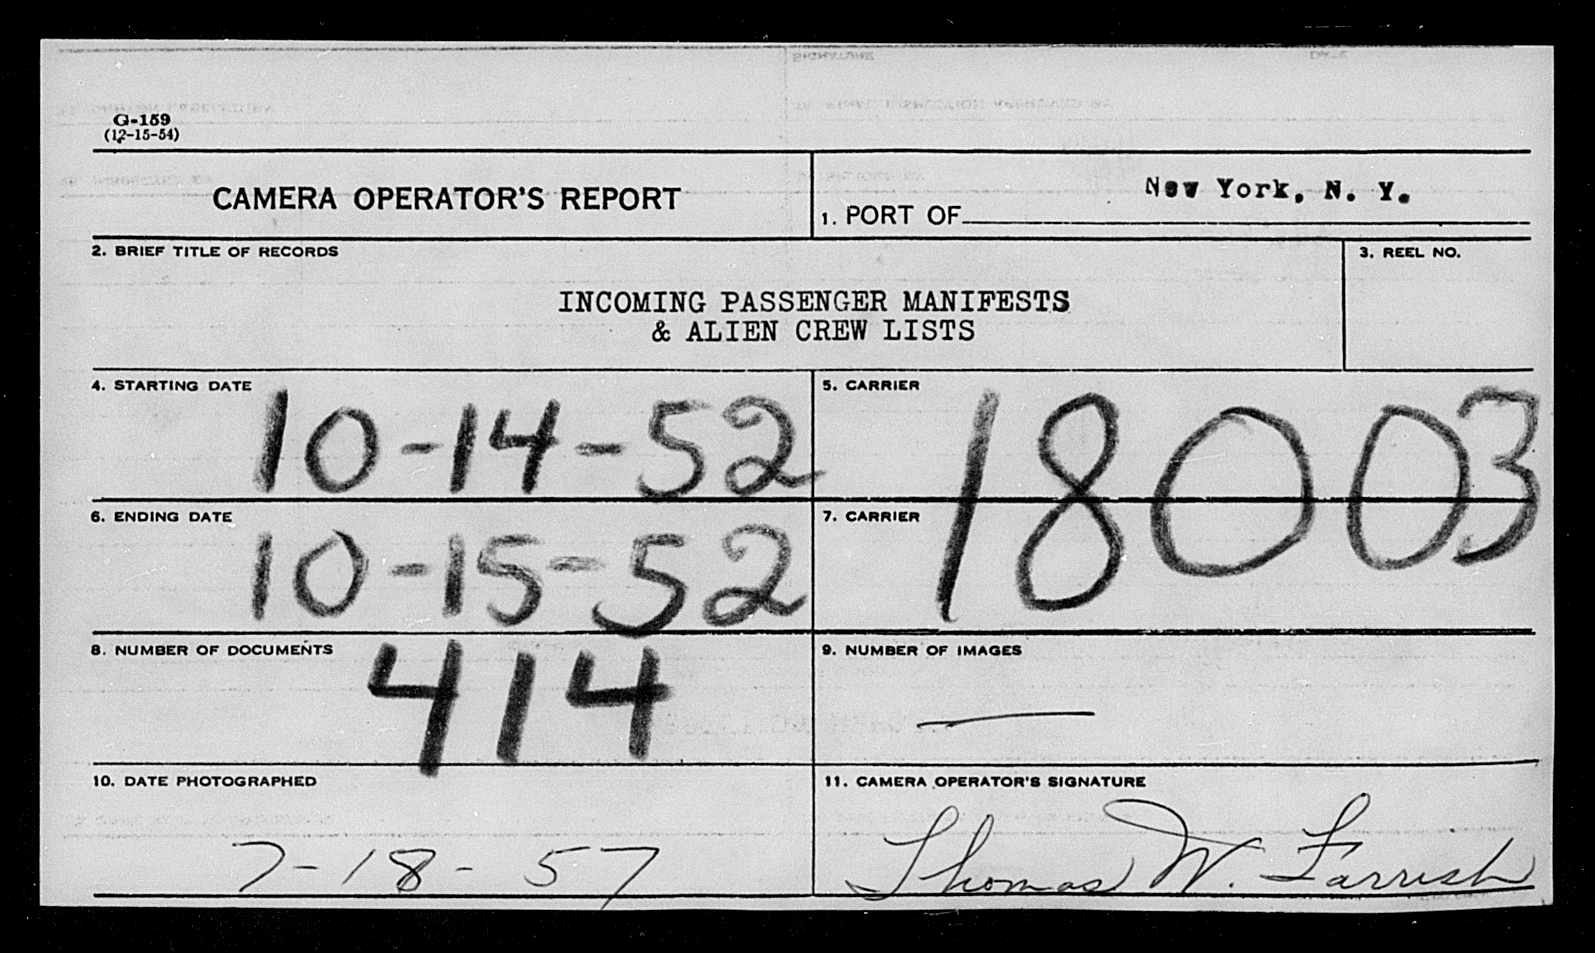 G-159
(12-15-54)
CAMERA OPERATOR'S REPORT
1. PORT OF New York, N. Y.
2. BRIEF TITLE OF RECORDS
3. REEL NO.
INCOMING PASSENGER MANIFESTS
& ALIEN CREW LISTS
4. STARTING DATE
10-14-52
5. CARRIER
18003
6. ENDING DATE
10-15-52
7. CARRIER
8. NUMBER OF DOCUMENTS
414
9. NUMBER OF IMAGES
—
10. DATE PHOTOGRAPHED
7-18-57
11. CAMERA OPERATOR'S SIGNATURE
Thomas W. Farrish